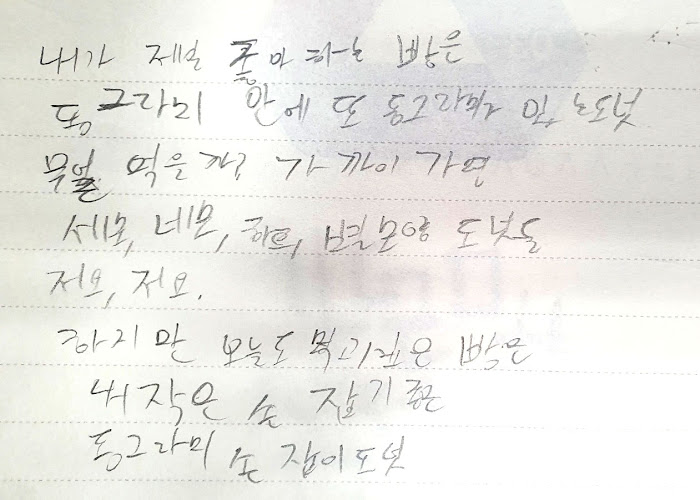 내가 제일 좋아하는 빵은
동그라미 안에 또 동그라미가 있는 도넛
무얼 먹을까? 가까이 가면
세모, 네모, 하트, 별모양 도넛들
저요, 저요.
하지만 오늘도 먹고싶은 빵은
내 작은 손 잡기 좋은
동그라미 손 잡이 도넛